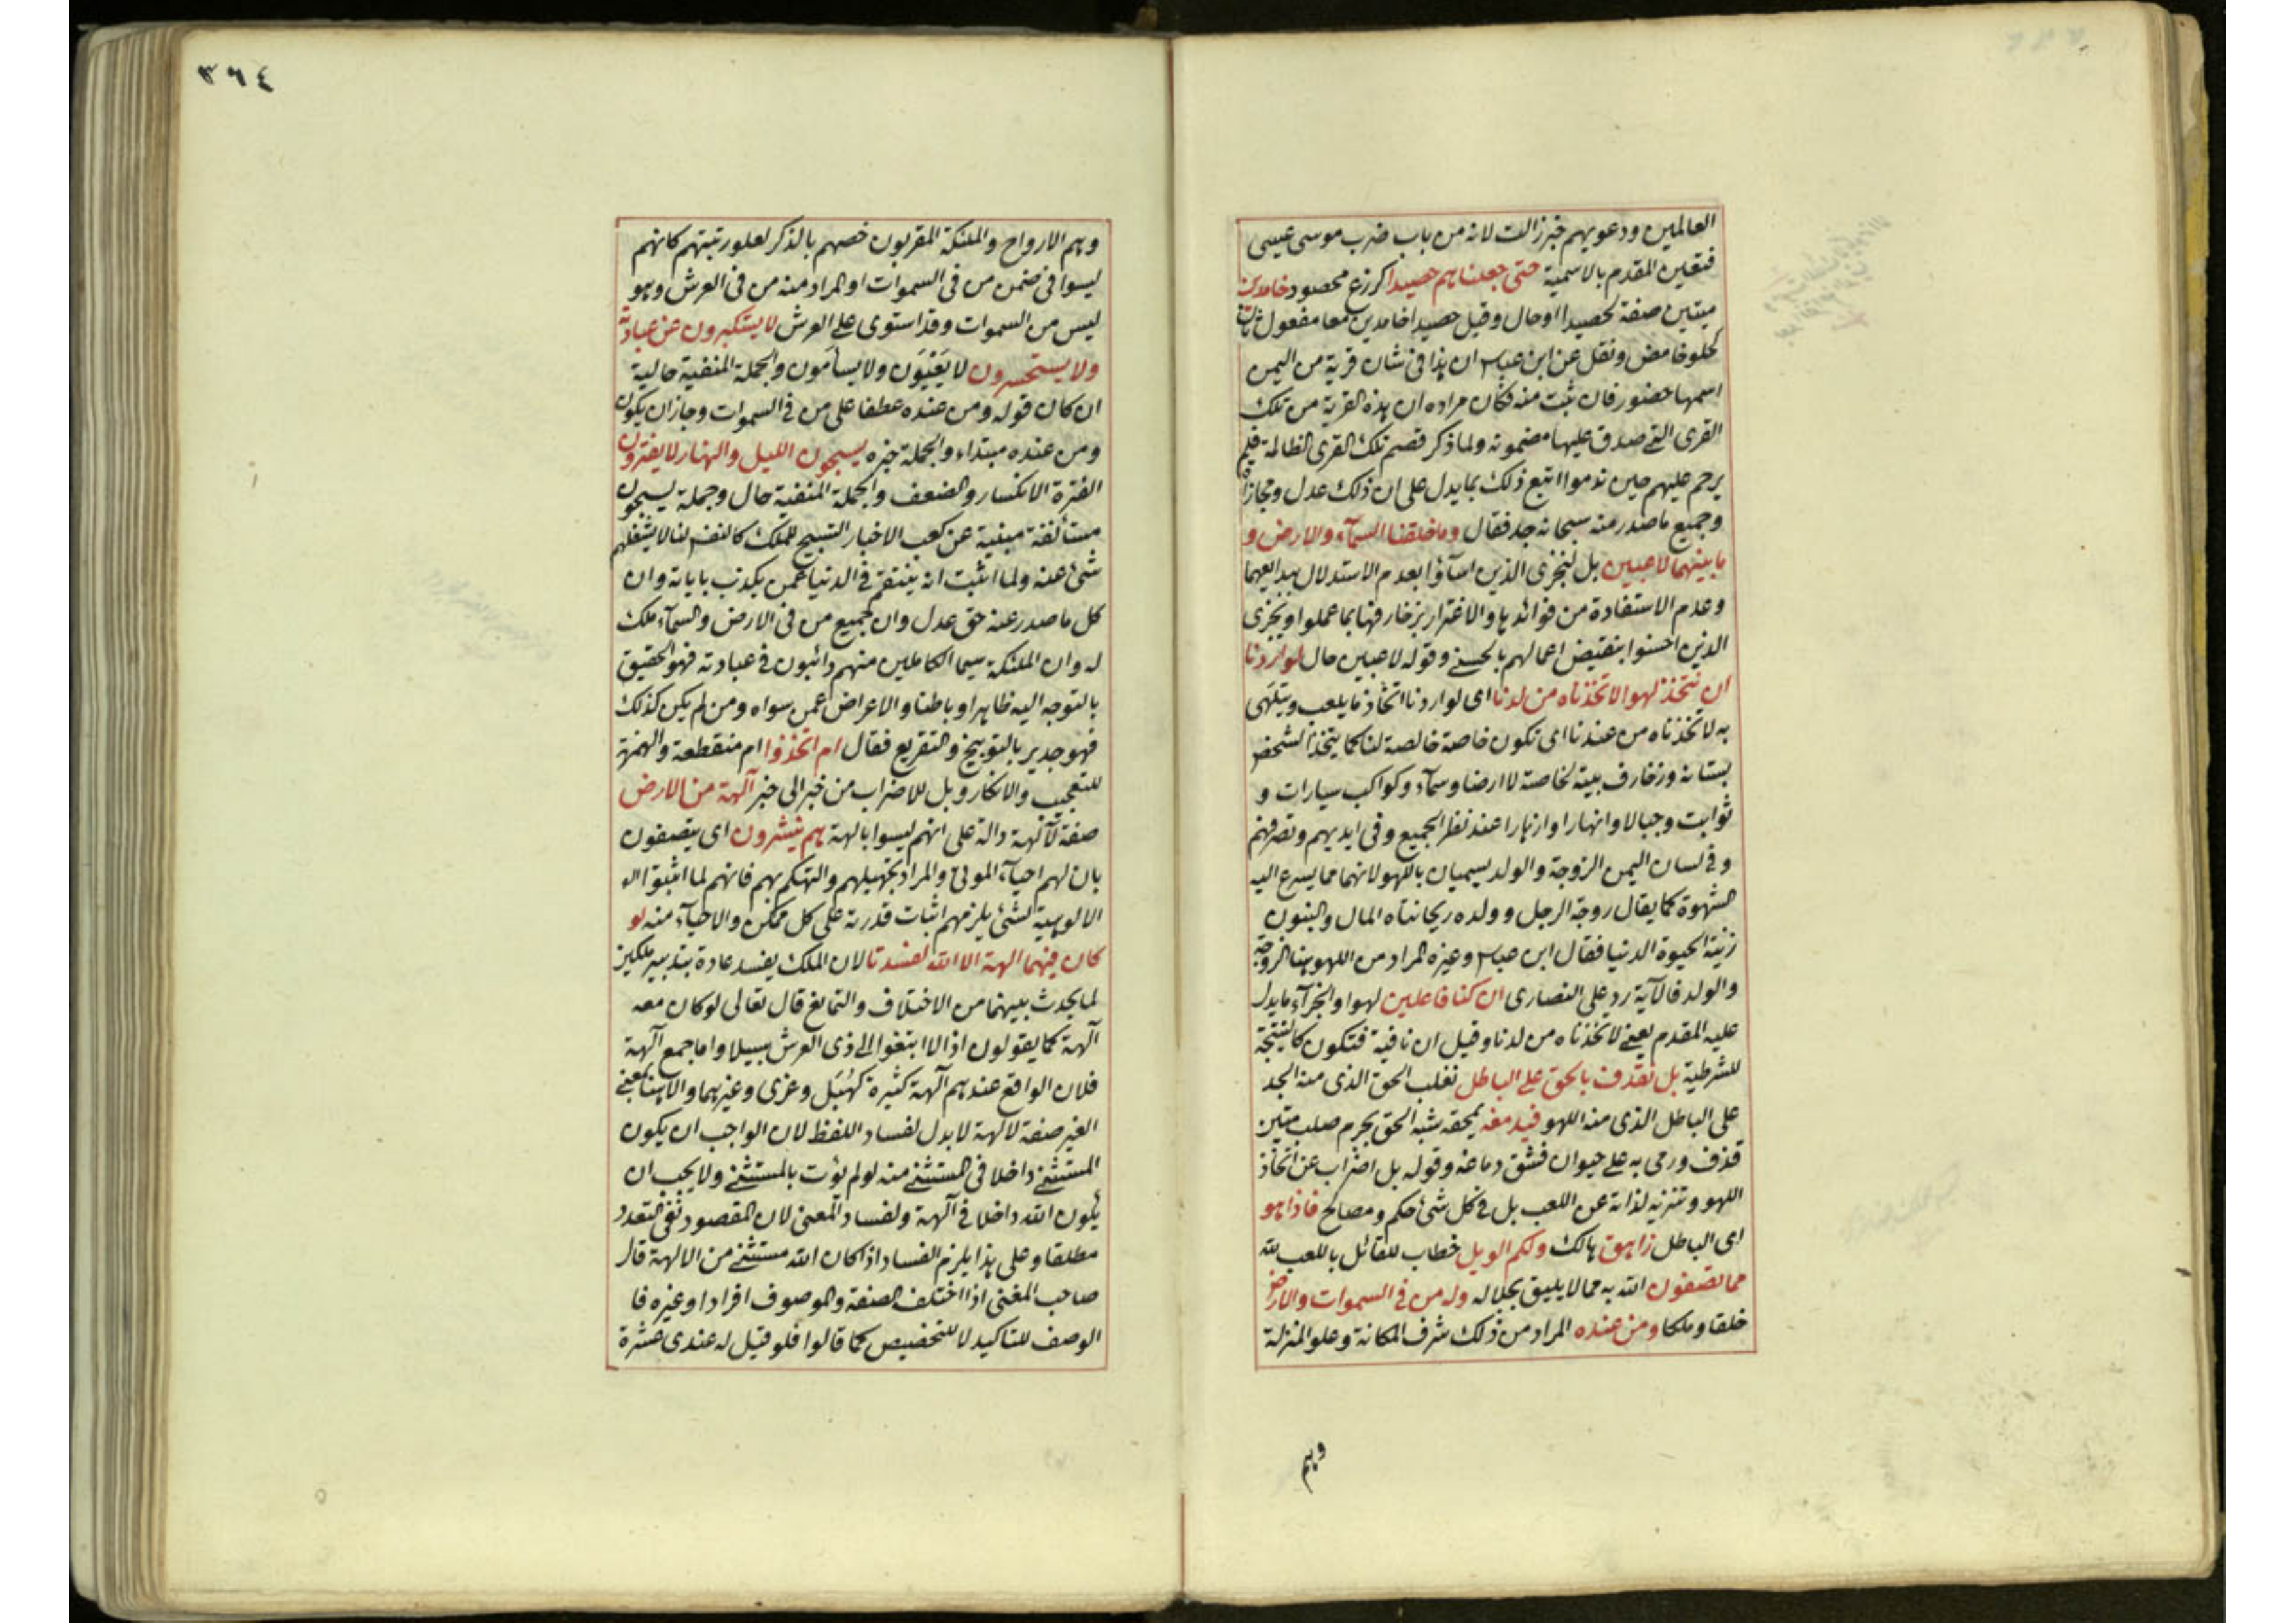 العالمين ودعويهم خبر زالت لانه من باب ضرب موسى عيسى
فتعين المقدم بالاسمية حتى جعلناهم حصيدا كزرع محصود خامدين
ميتين صفة لحصيدا او حال وقيل حصيدا خامدين معا مفعول ثان
كحلو حامض ونقل عن ابن عباس ان هذا في شان قرية من اليمن
اسمها حضور فان ثبت منه فكان مراده ان هذه القرية من تلك
القرى التي صدق عليها مضمونه ولما ذكر قصم تلك القرى الظالمة فلم
يرحم عليهم حين ندموا اتبع ذلك بما يدل على ان ذلك عدل ومجازاة
وجميع ما صدر منه سبحانه جد فقال وما خلقنا السمآء والارض و
ما بينهما لاعبين بل لنجزى الذين اسآؤا بعدم الاستدلال ببدايعهما
وعدم الاستفادة من فوائدها والاغترار بزخارفها بما عملوا ويجزى
الذين احسنوا بنقيض اعمالهم بالحسنى وقوله لاعبين حال لو اردنا
ان نتخذ لهوا لاتخذناه من لدنا اى لو اردنا اتخاذ ما يلعب ويتلهى
به لاتخذناه من عندنا اى تكون خاصة خالصة لنا كما يتخذ الشخص
بستانه وزخارف بيته لخاصته لا ارضا وسمآء وكواكب سيارات و
ثوابت وجبالا وانهارا وازهارا عند نظر الجميع وفى ايديهم وتصرفهم
وفي لسان اليمن الزوجة والولد يسميان باللهو لانهما مما يسرع اليه
الشهوة كما يقال روجة الرجل وولده ريحانتاه المال والبنون
زينة الحيوة الدنيا فقال ابن عباس وغيره المراد من اللهو هنا الزوجة
والولد فالآية رد على النصارى ان كنا فاعلين لهوا والجزآء ما يدل
عليه المقدم يعنى لاتخذناه من لدنا وقيل ان نافية فتكون كالنتيجة
للشرطية بل نقذف بالحق على الباطل نغلب الحق الذى منه الجد
على الباطل الذى منه اللهو فيدمغه يمحقه شبه الحق بجرم صلب متين
قذف ورمى به على حيوان فشق دماغه وقوله بل اضراب عن اتخاذ
اللهو وتنزيه لذاته عن اللعب بل في كل شئ حكم ومصالح فاذا هو
اى الباطل زاهق هالك ولكم الويل خطاب للقائل باللعب لله
مما تصفون الله به مما لا يليق بجلاله وله من في السموات والارض
خلقا وملكا ومن عنده المراد من ذلك شرف المكانة وعلو المنزلة
وهم
٣٦٤
وهم الارواح والملئكة المقربون خصهم بالذكر لعلو رتبتهم كانهم
ليسوا في ضمن من في السموات او المراد منه من في العرش وهو
ليس من السموات وقد استوى على العرش لا يستكبرون عن عبادته
ولا يستحسرون لا يَعْيَوْن ولا يسأمون والجملة المنفية حالية
ان كان قوله ومن عنده عطفا على من في السموات وجاز ان يكون
ومن عنده مبتداء والجملة خبره يسبحون الليل والنهار لا يفترون
الفترة الانكسار والضعف والجملة المنفية حال وجملة يسبحون
مستأنفة مبنية عن كعب الاخبار التسبيح للملك كالنفس لنا لا يشغلهم
شئ عنه ولما اثبت انه ينتقم في الدنيا عمن يكذب باياته وان
كل ما صدر عنه حق عدل وان جميع من في الارض والسمآء ملك
له وان الملئكة سيما الكاملين منهم دائبون في عبادته فهو الحقيق
بالتوجه اليه ظاهرا وباطنا والاعراض عمن سواه ومن لم يكن كذلك
فهو جدير بالتوبيخ والتقريع فقال ام اتخذوا ام منقطعة والهمزة
للتعجيب والانكار وبل للاضراب من خبر الى خبر آلهة من الارض
صفة لآلهة دالة على انهم ليسوا بالهة هم ينشرون اى يتصفون
بان لهم احيآء الموتى والمراد تجهيلهم والتهكم بهم فانهم لما اثبتوا
الالوهية لشئ يلزمهم اثبات قدرته على كل ممكن والاحيآء منه لو
كان فيهما الهة الا الله لفسدتا لان الملك يفسد عادة بتدبير ملكين
لما يحدث بينهما من الاختلاف والتمانع قال تعالى لو كان معه
آلهة كما يقولون اذا لا ابتغوا الى ذى العرش سبيلا واما جمع آلهة
فلان الواقع عندهم آلهة كثيرة كهُبَل وعزى وغيرهما والا هنا بمعنى
الغير صفة لالهة لا بدل لفساد اللفظ لان الواجب ان يكون
المستثنى داخلا في المستثنى منه لو لم يؤت بالمستثنى ولا يجب ان
يكون الله داخلا في آلهة ولفساد المعنى لان المقصود نفى التعدد
مطلقا وعلى هذا يلزم الفساد اذا كان الله مستثنى من الالهة قال
صاحب المغنى اذا اختلف الصفة والموصوف افرادا وغيره فا
الوصف للتاكيد لا للتخصيص كما قالوا فلو قيل له عندى عشرة